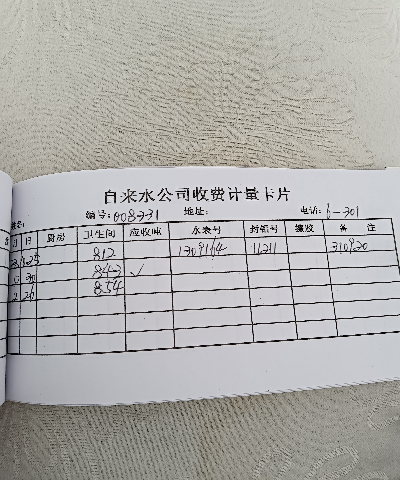 自来水公司收费计量卡片
编号: 008231 地址: 电话: 6-301
月 日 厨房 卫生间 应收吨 水表号 封铅号 橡胶 备注
25 812 1309164 11211 310920
843 ✓
2 26 854